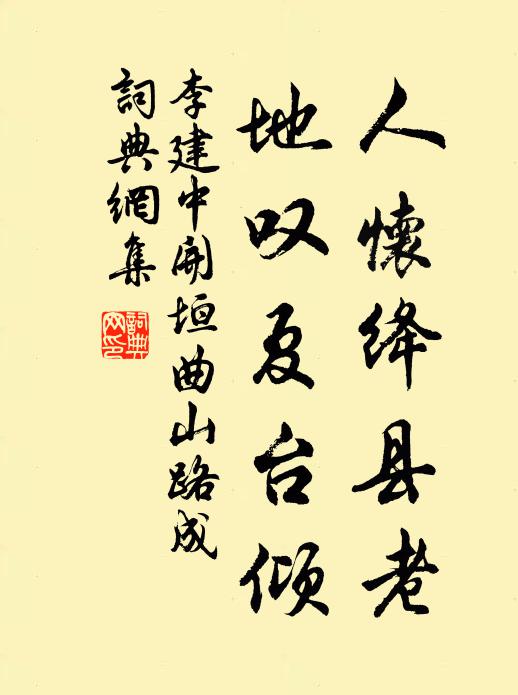 人懷绛县老
地叹夏台倾
李建中開垣曲山路成
詞典網集
詞典
网印